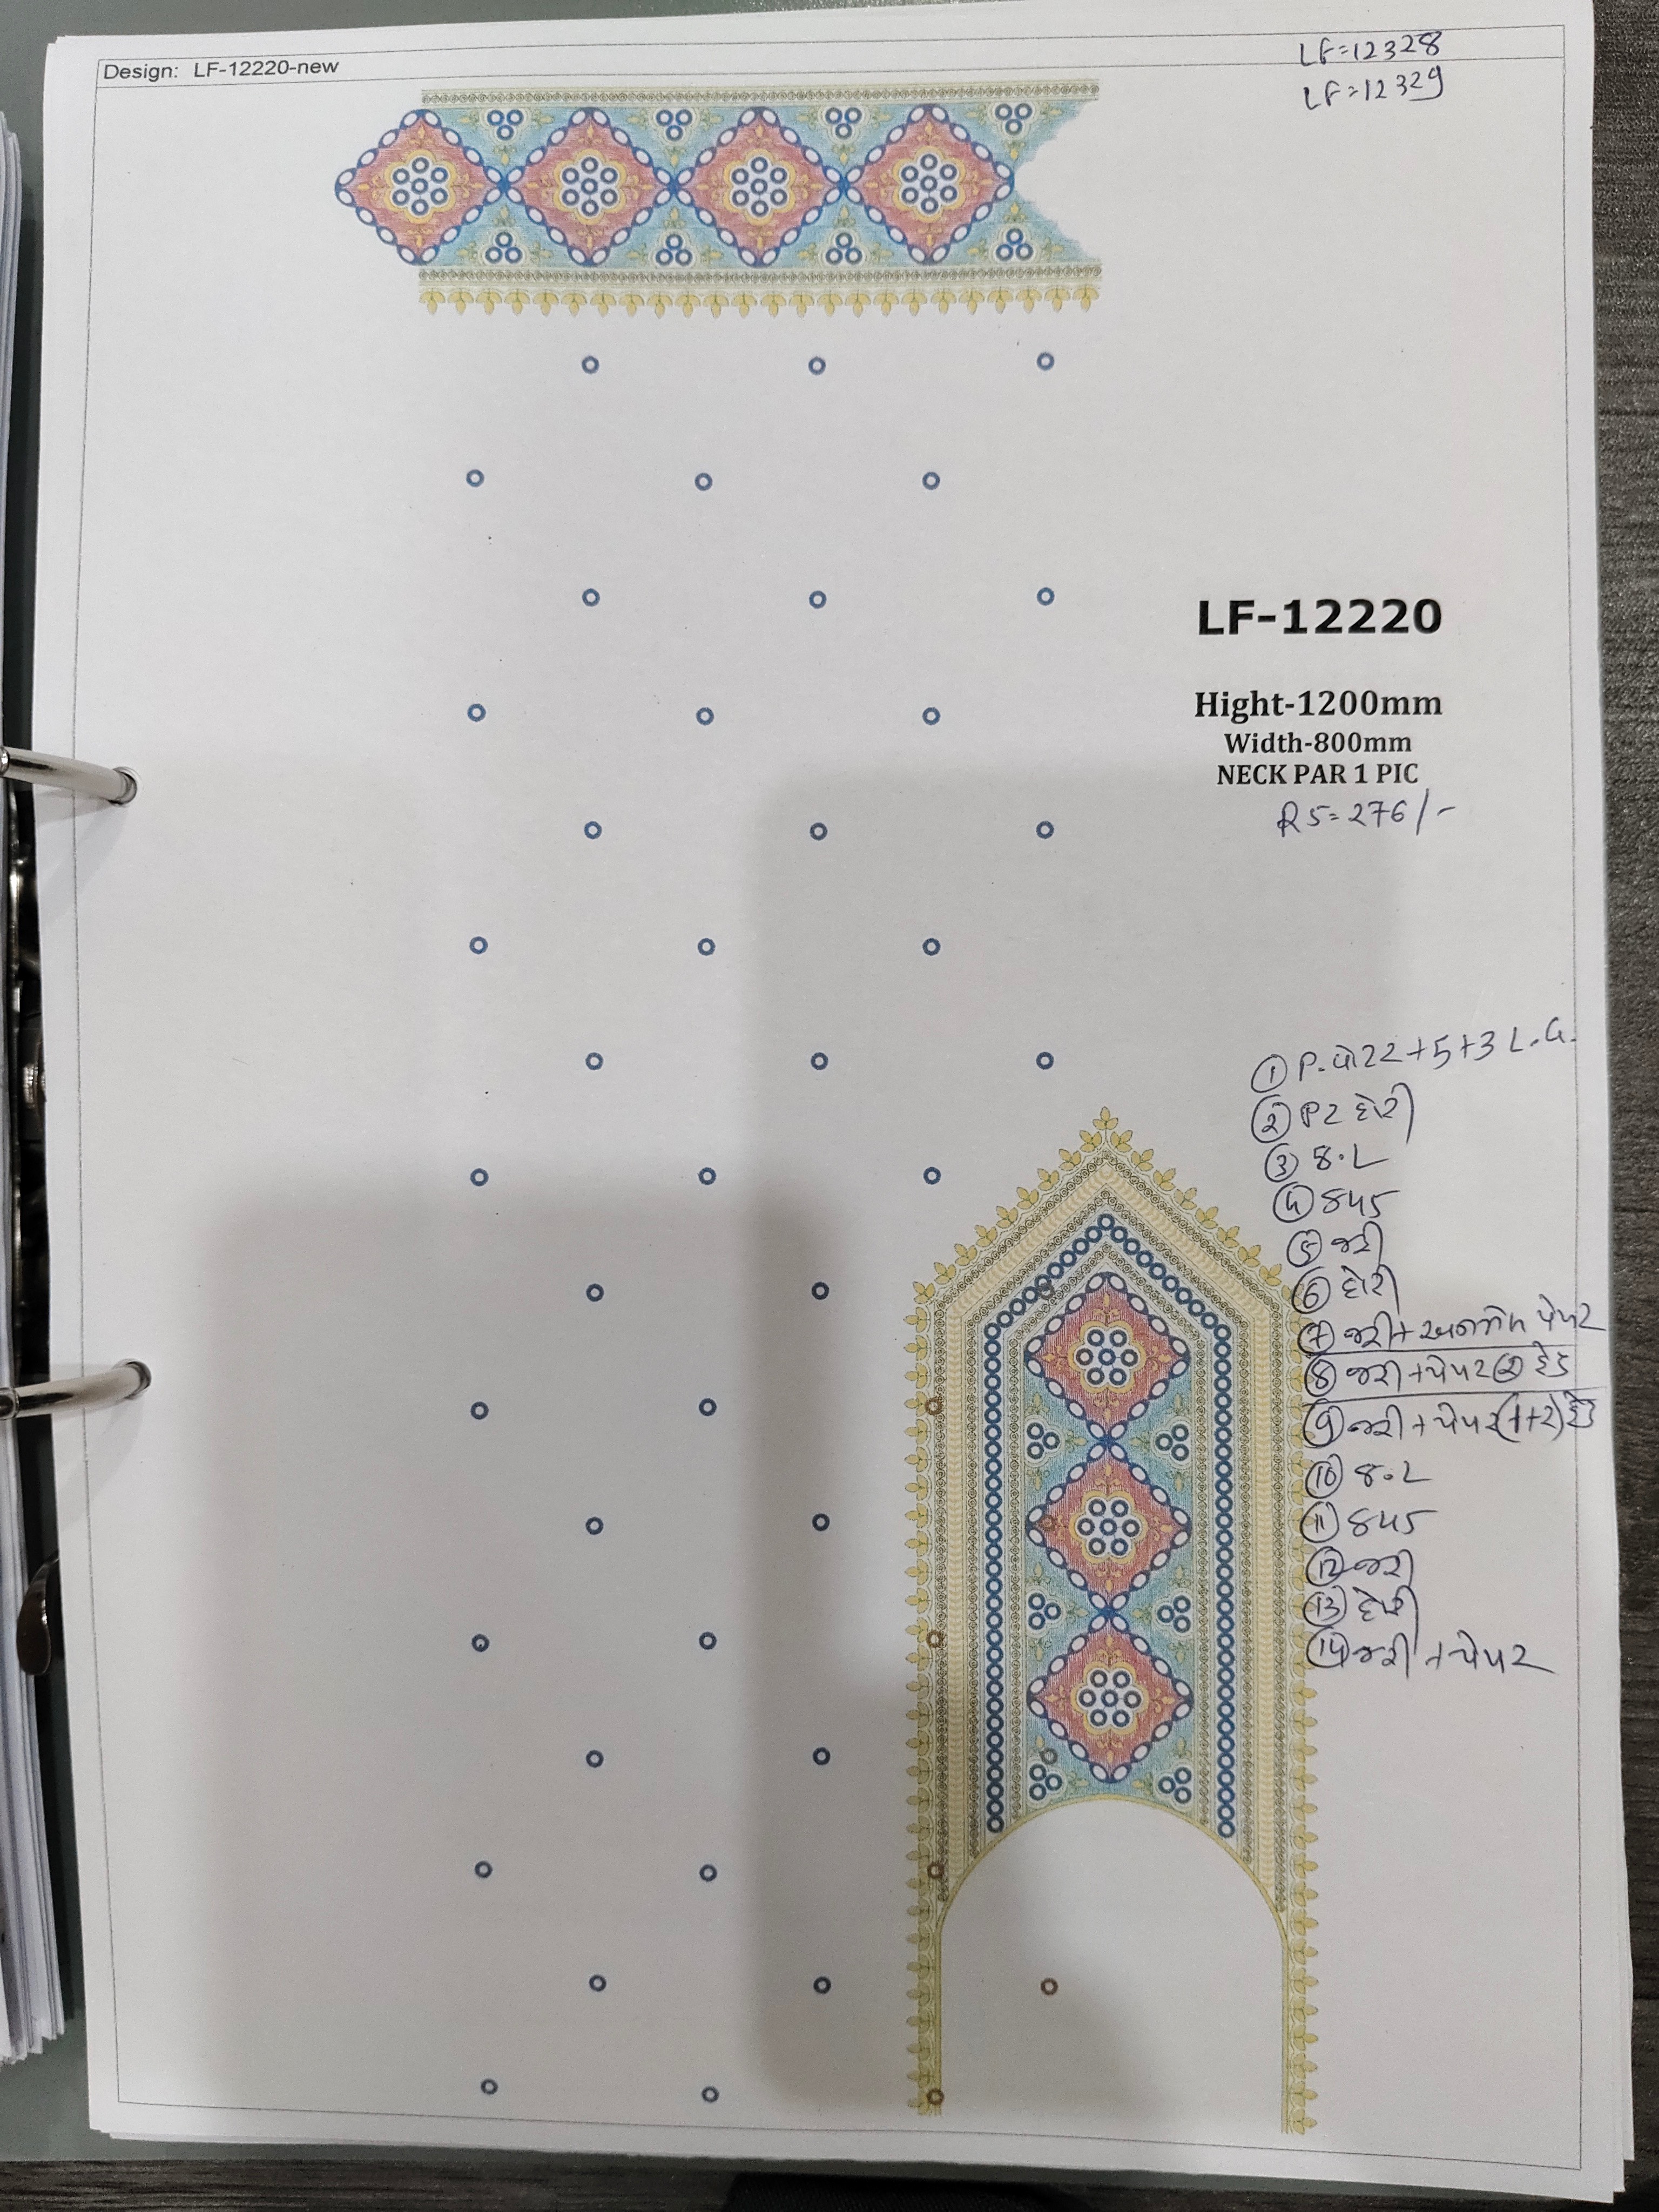 Design: LF-12220-new
LF=12328
LF=12329
LF-12220
Hight-1200mm
Width-800mm
NECK PAR 1 PIC
RS=276/-
① P. +5+3 L.G.
② દોરી
③ 8.L
④ 845
⑤ જરી
⑥ દોરી
⑦ જરી + પેપર
⑧ જરી + પેપર ② હેડ
⑨ જરી + પેપર (1+2) હેડ
⑩ 8.L
⑪ 845
⑫ જરી
⑬ દોરી
⑭ જરી + પેપર